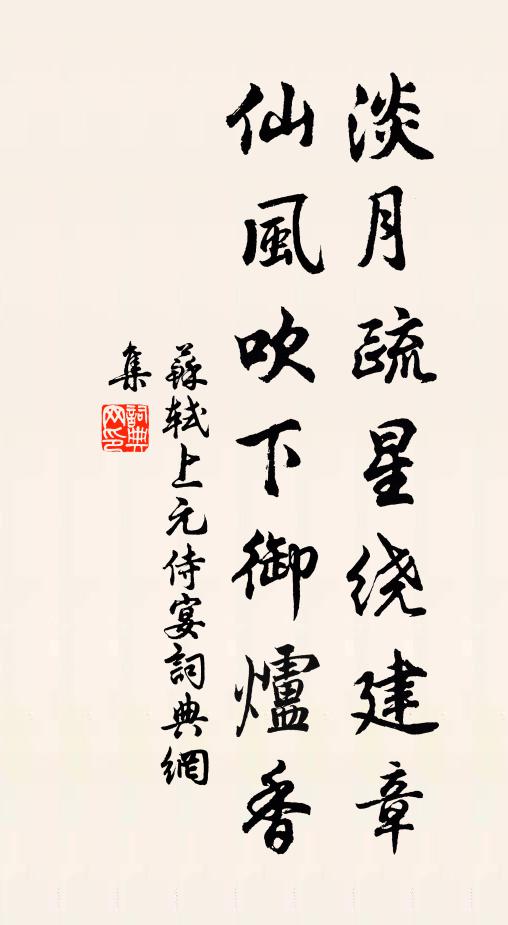 淡月疏星绕建章
仙風吹下御爐香
蘇軾上元侍宴詞典網
集
詞典網印